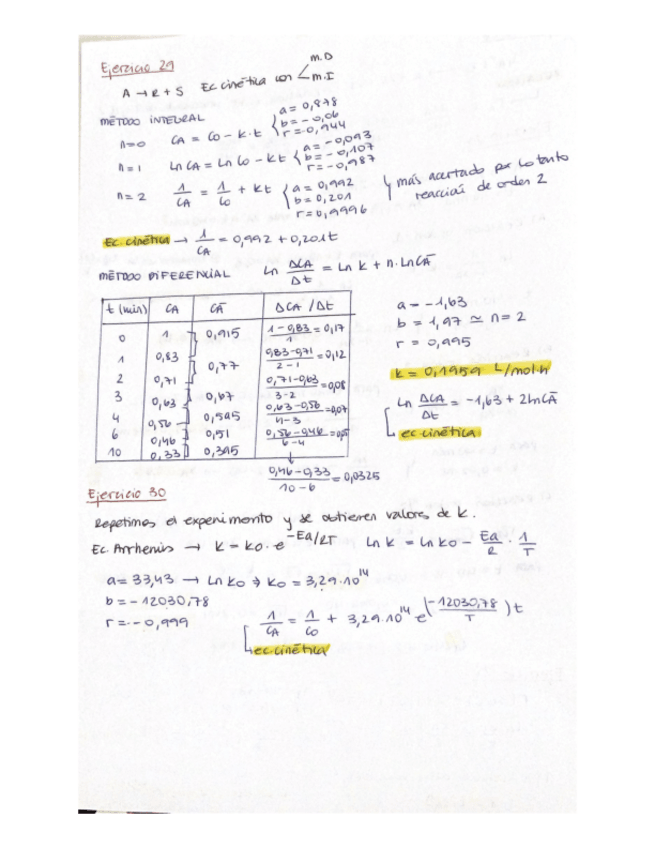 Ejercicio 29
A → R + S Ec. cinética con < m.D
m.I
MÉTODO INTEGRAL
n=0 CA = Co - k·t { a = 0,878
b = -0,06
r = -0,944
n=1 Ln CA = Ln Co - kt { a = -0,093
b = -0,107
r = -0,987
n=2 1/CA = 1/Co + kt { a = 0,992
b = 0,201
r = 0,9996
más acertado por lo tanto
reacción de orden 2
Ec. cinética → 1/CA = 0,992 + 0,201t
MÉTODO DIFERENCIAL Ln ΔCA/Δt = Ln k + n·Ln C̄A
t (min) CA C̄A ΔCA/Δt
0 1 0,915 1-0,83/1 = 0,17
1 0,83 0,77 0,83-0,71/2-1 = 0,12
2 0,71 0,67 0,71-0,63/3-2 = 0,08
3 0,63 0,595 0,63-0,56/4-3 = 0,07
4 0,56 0,51 0,56-0,46/6-4 = 0,05
6 0,46 0,395
10 0,33
↓
0,46-0,33/10-6 = 0,0325
a = -1,63
b = 1,97 ≃ n = 2
r = 0,995
k = 0,1959 L/mol·h
Ln ΔCA/Δt = -1,63 + 2 ln C̄A
ec. cinética
Ejercicio 30
Repetimos el experimento y se obtienen valores de k.
Ec. Arrhenius → k = ko · e^-Ea/RT Ln k = Ln ko - Ea/R · 1/T
a = 33,43 → Ln ko → ko = 3,29·10^14
b = -12030,78
r = -0,999
1/CA = 1/Co + 3,29·10^14 e^(-12030,78/T) t
ec. cinética